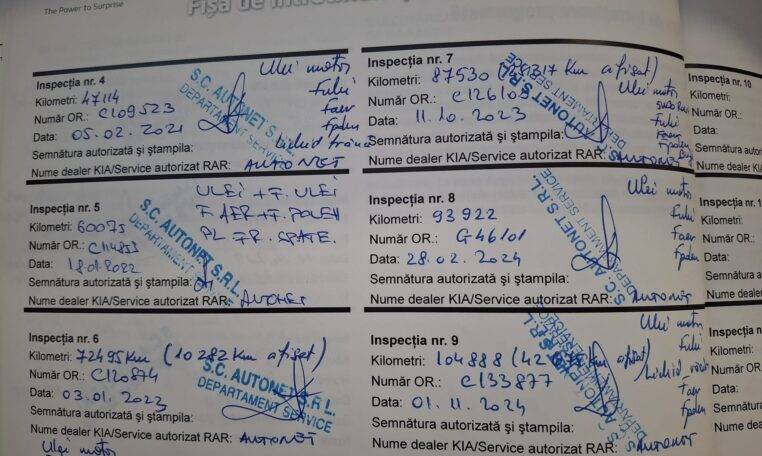 The Power to Surprise
Fișa de
Inspecția nr. 4
Kilometri: 47114
Număr OR.: C109523
Data: 05.02.2021
Semnătura autorizată și ștampila:
Nume dealer KIA/Service autorizat RAR: AUTONET
S.C. AUTONET S.R.L.
DEPARTAMENT SERVICE
Ulei motor
Fului
faer
fpolen
Inspecția nr. 5
Kilometri: 60075
Număr OR.: C114853
Data: 18.01.2022
Semnătura autorizată și ștampila:
Nume dealer KIA/Service autorizat RAR: AUTONET
S.C. AUTONET S.R.L.
DEPARTAMENT SERVICE
ULEI + F. ULEI
F. AER + F. POLEN
PL FR. SPATE.
Inspecția nr. 6
Kilometri: 72495 km (10282 km afisat)
Număr OR.: C120874
Data: 03.01.2023
Semnătura autorizată și ștampila:
Nume dealer KIA/Service autorizat RAR: AUTONET
S.C. AUTONET S.R.L.
DEPARTAMENT SERVICE
Ulei motor
Inspecția nr. 7
Kilometri: 87530 km afisat)
Număr OR.: C126103
Data: 11.10.2023
Semnătura autorizată și ștampila:
Nume dealer KIA/Service autorizat RAR: AUTONET
S.C. AUTONET S.R.L.
DEPARTAMENT SERVICE
Ulei motor
Fului
Faer
fpolen
Inspecția nr. 8
Kilometri: 93922
Număr OR.: G46101
Data: 28.02.2024
Semnătura autorizată și ștampila:
Nume dealer KIA/Service autorizat RAR: AUTONET
S.C. AUTONET S.R.L.
DEPARTAMENT SERVICE
Ulei motor
Fului
Faer
fpolen
Inspecția nr. 9
Kilometri: 104888 km afisat)
Număr OR.: C133877
Data: 01.11.2024
Semnătura autorizată și ștampila:
Nume dealer KIA/Service autorizat RAR: AUTONET
Ulei motor
Fului
Faer
fpolen
Inspecția nr. 10
Kilometri:
Număr OR.:
Data:
Semnătura a
Nume dealer
Inspecția nr. 1
Kilometri:
Număr OR.:
Data:
Semnătura a
Nume dealer
Inspecția n
Kilometri:
Număr OR
Data:
Semnătura
Nume deal